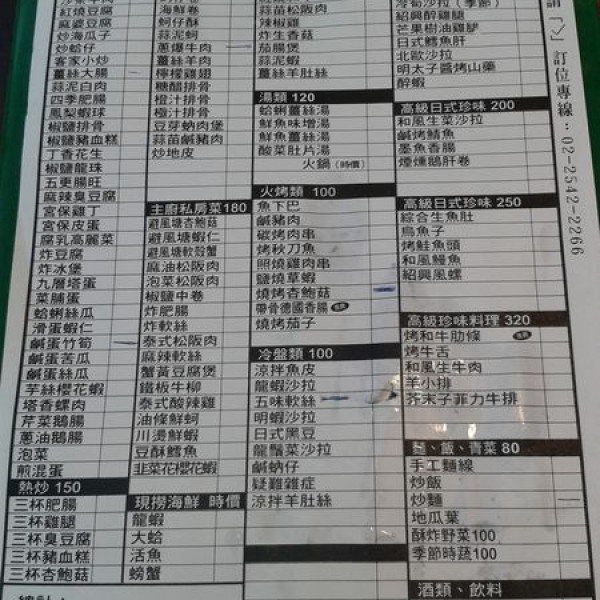 紅燒豆腐
麻婆豆腐
炒海瓜子
炒蛤仔
客家小炒
薑絲大腸
蒜泥白肉
四季肥腸
鳳梨蝦球
椒鹽排骨
椒鹽豬血糕
丁香花生
椒鹽龍珠
五更腸旺
麻辣臭豆腐
宮保雞丁
宮保皮蛋
腐乳高麗菜
炸豆腐
炸冰堡
九層塔蛋
菜脯蛋
蛤蜊絲瓜
滑蛋蝦仁
鹹蛋竹筍
鹹蛋苦瓜
鹹蛋絲瓜
芋絲櫻花蝦
塔香螺肉
芹菜鵝腸
蔥油鵝腸
泡菜
煎混蛋
熱炒 150
三杯肥腸
三杯雞腿
三杯臭豆腐
三杯豬血糕
三杯杏鮑菇
海鮮卷
蚵仔酥
蒜泥蚵
蔥爆牛肉
薑絲羊肉
檸檬雞翅
糖醋排骨
橙汁排骨
極汁排骨
豆芽蚋肉煲
蒜苗鹹豬肉
炒地皮
主廚私房菜180
避風塘杏鮑菇
避風塘蝦仁
避風塘軟殼蟹
麻油松阪肉
泡菜松阪肉
椒鹽中卷
炸肥腸
炸軟絲
泰式松阪肉
麻辣軟絲
蟹黃豆腐煲
鐵板牛柳
泰式酸辣雞
油條鮮蚵
川燙鮮蝦
豆酥鱈魚
韭菜花櫻花蝦
現撈海鮮 時價
龍蝦
大蛤
活魚
螃蟹
蒜苗松阪肉
辣椒雞
炸生香菇
茄腸煲
蒜泥蝦
薑絲羊肚絲
湯類 120
蛤蜊薑絲湯
鮮魚味增湯
鮮魚薑絲湯
酸菜肚片湯
火鍋 (時價)
火烤類 100
魚下巴
鹹豬肉
碳烤肉串
烤秋刀魚
照燒雞肉串
鹽燒草蝦
燒烤杏鮑菇
帶骨德國香腸
燒烤茄子
冷盤類 100
涼拌魚皮
龍蝦沙拉
五味軟絲
明蝦沙拉
日式黑豆
龍鬚菜沙拉
鹹蚋仔
疑難雜症
涼拌羊肚絲
冷筍沙拉(季節)
紹興醉雞腿
芒果樹油雞腿
日式鱈魚肝
北歐沙拉
明太子醬烤山藥
醉蝦
高級日式珍味 200
和風生菜沙拉
鹹烤鯖魚
墨魚香腸
煙燻鵝肝卷
高級日式珍味 250
綜合生魚肚
烏魚子
烤鮭魚頭
和風鰻魚
紹興風螺
高級珍味料理 320
烤和牛肋條
烤牛舌
和風生牛肉
羊小排
芥末子菲力牛排
麵、飯、青菜 80
手工麵線
炒飯
炒麵
地瓜葉
酥炸野菜100
季節時蔬100
酒類、飲料
請「ㄥ」訂位專線：02-2542-2266